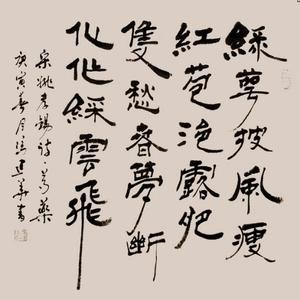 綠萼披風瘦
紅苞浥露肥
隻愁春夢斷
化作綵雲飛
宋姚孝錫詩芍藥
庚寅春月建華書